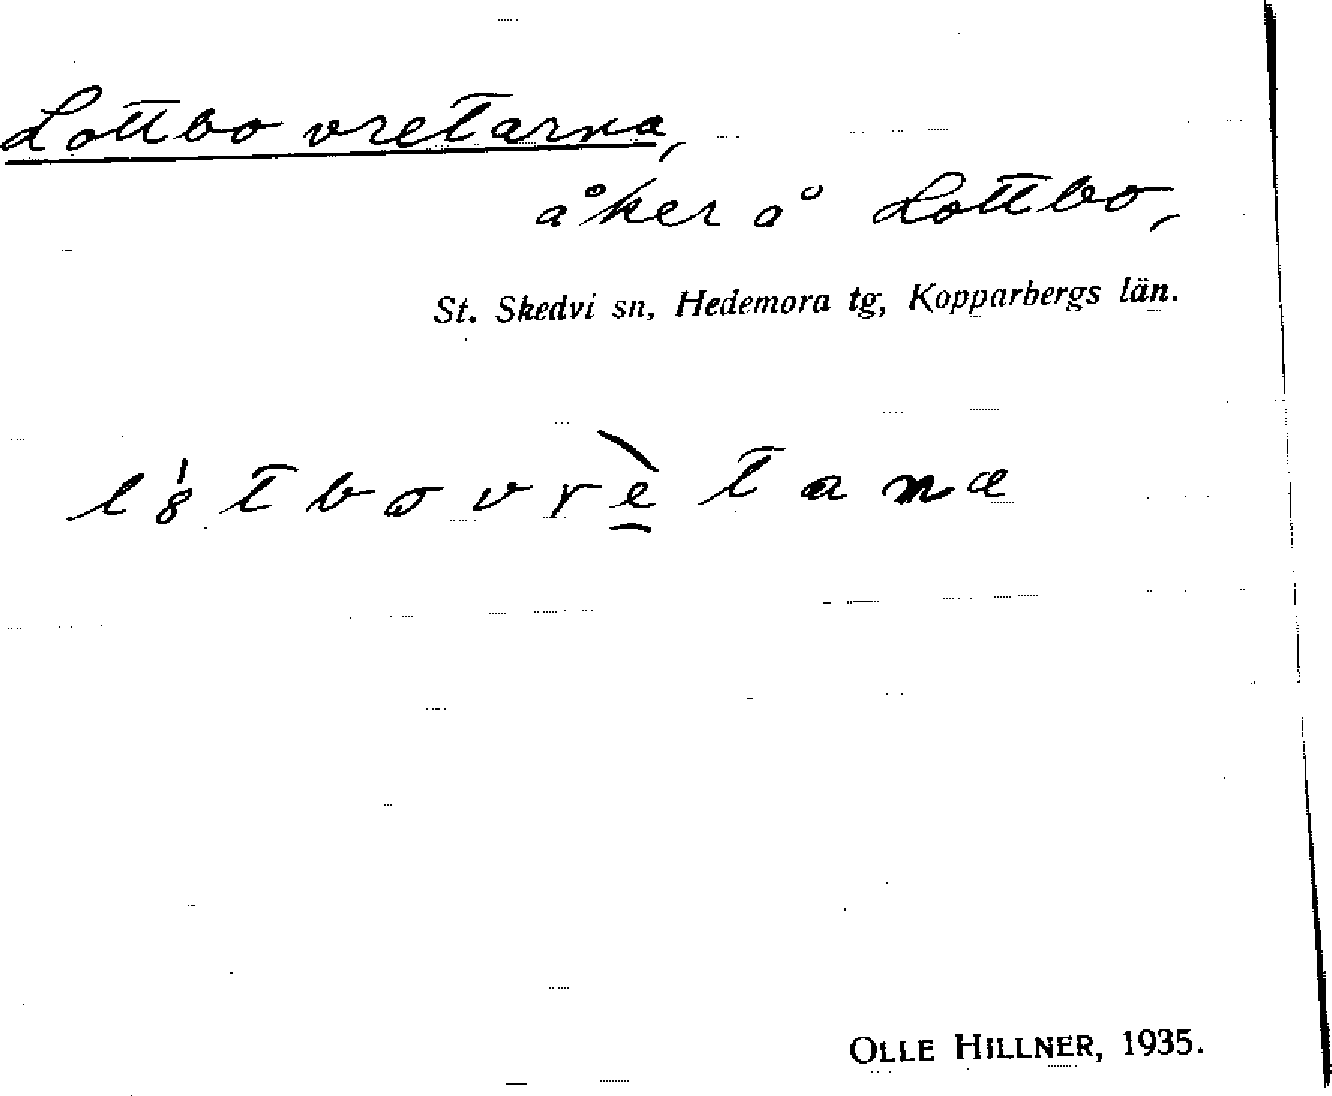 Lottbo vretarna,
åker å Lottbo,
St. Skedvi sn, Hedemora tg, Kopparbergs län.
OLLE HILLNER, 1935.